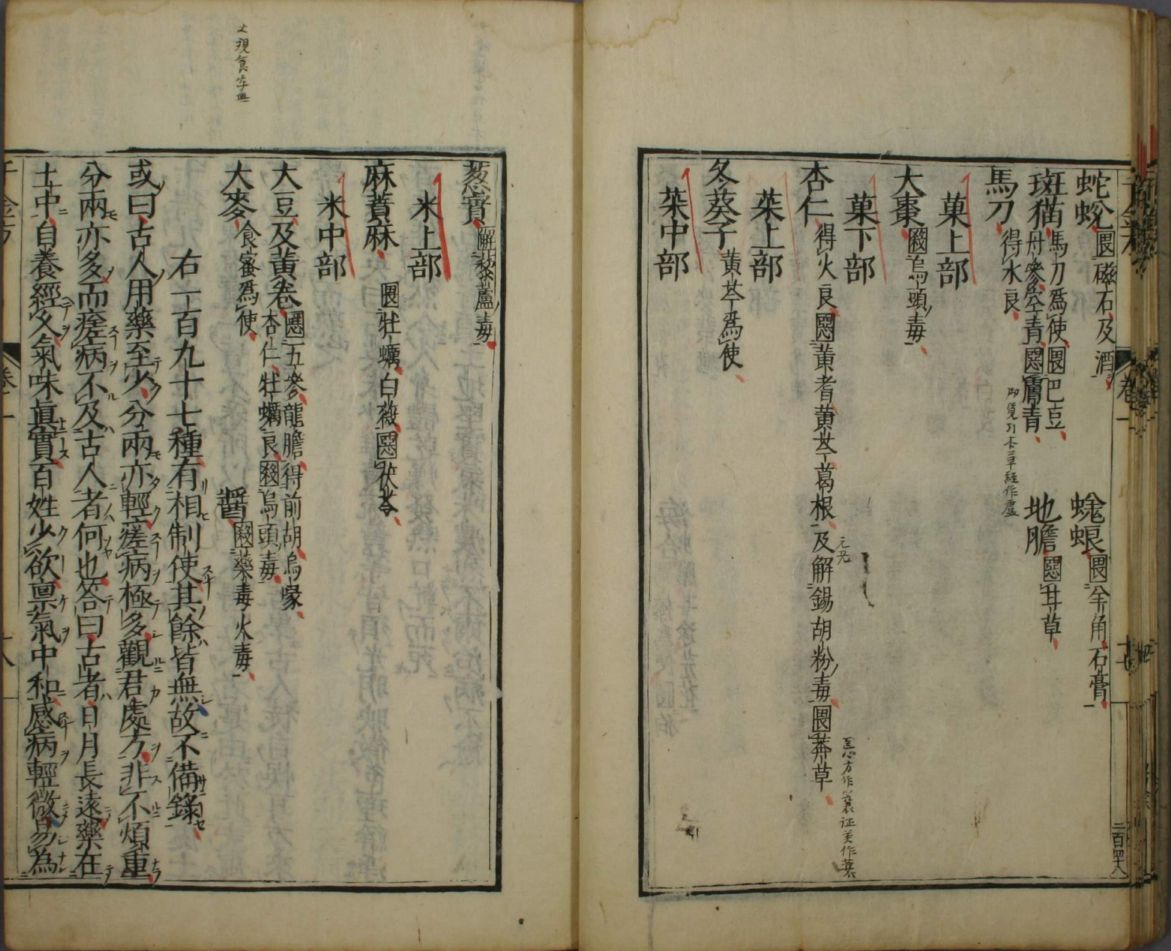 蛇蛻畏磁石及酒
蜣蜋畏羊角石膏
斑猫馬刀爲使畏巴豆
丹參空青惡膚青
地膽惡甘草
馬刀得水良
菓上部
大棗殺烏頭毒
菓下部
杏仁得火良惡黃耆黃芩葛根及解錫胡粉毒畏莽草
菜上部
冬葵子黃芩爲使
菜中部
葱實解藜蘆毒
米上部
麻蕡麻畏牡蠣白薇惡茯苓
米中部
大豆及黃卷惡五參龍膽得前胡烏喙
杏仁牡蠣良殺烏頭毒
大麥食蜜爲使
醬殺藥毒火毒
右一百九十七種有相制使其餘皆無故不備錄
或曰古人用藥至少分兩亦輕瘥病極多觀君處方非不煩重
分兩亦多而瘥病不及古人者何也答曰古者日月長遠藥在
土中自養經久氣味眞實百姓少欲禀氣中和感病輕微易為